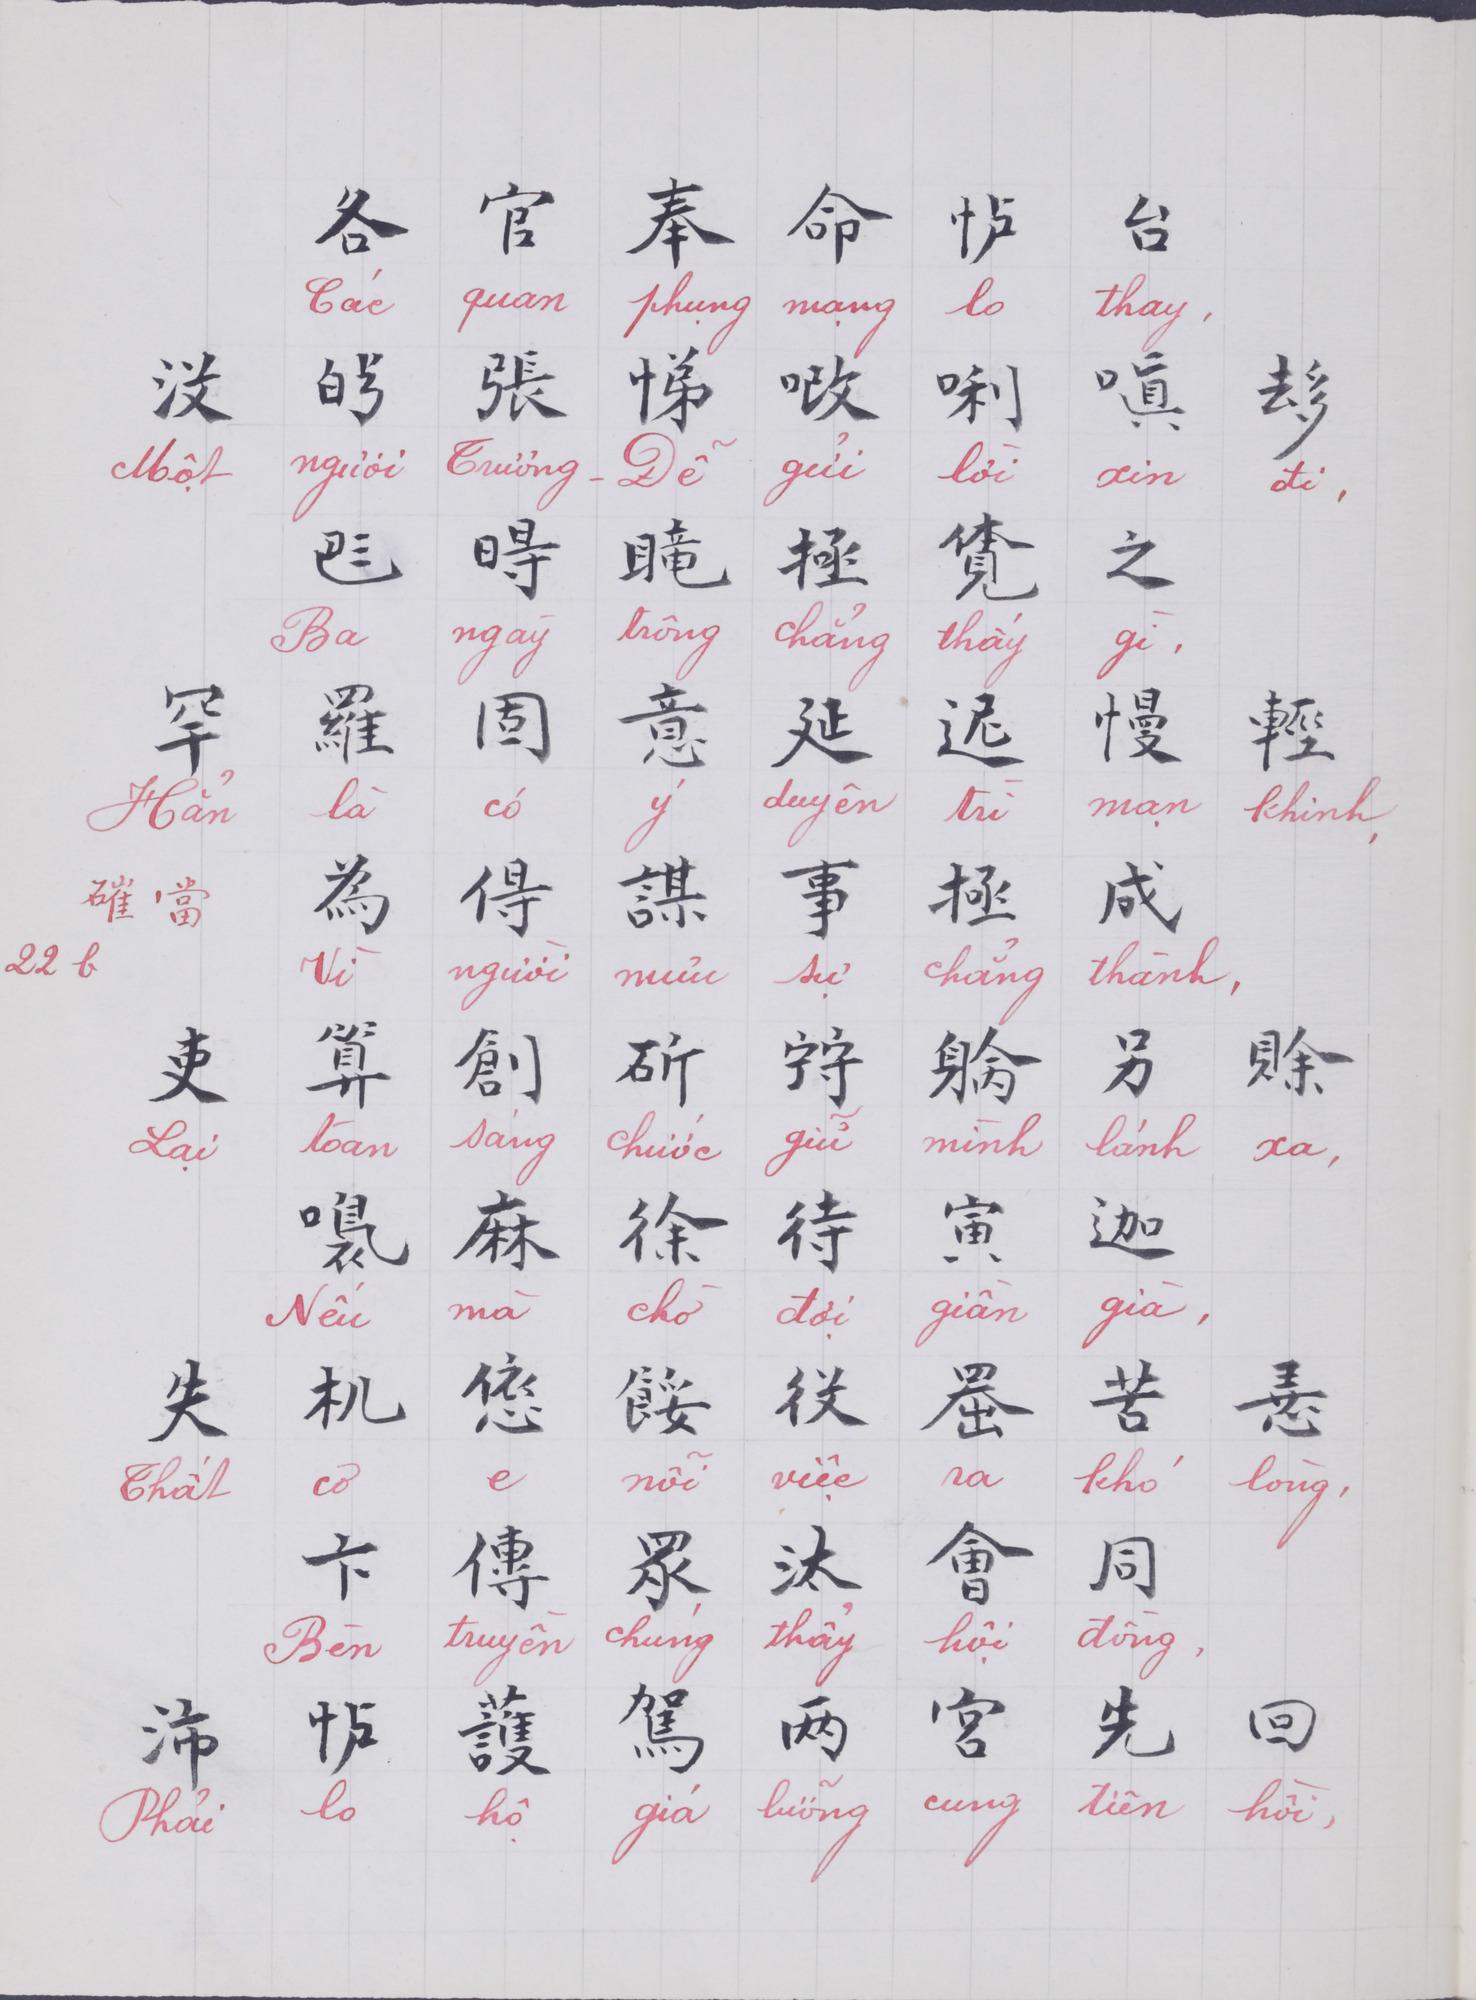 各官奉命𢗼台
Các quan phụng mạng lo thay,
没𠊛張悌𠳚唎嗔𠫾
Một người Trương-Dễ gửi lời xin đi,
𠀧𣈜𥊣極覚之
Ba ngày trông chẳng thấy gì,
罕羅固意延迟慢輕
Hẳn là có ý duyên trì mạn khinh,
為得謀事極成
Vì người mưu sự chẳng thành,
磪 噹
22 b
吏算創斫𡨹躺另賒
Lại toan sáng chước giữ mình lánh xa,
麻徐待寅迦
Nếu mà chờ đợi giần già,
失机餒役𦋦苦𢚸
Thất cơ e nỗi việc ra khó lòng,
卞傳眾汰會同
Bèn truyền chúng thảy hội đồng,
沛𢗼護駕两宮先回
Phải lo hộ giá lưỡng cung tiên hồi,